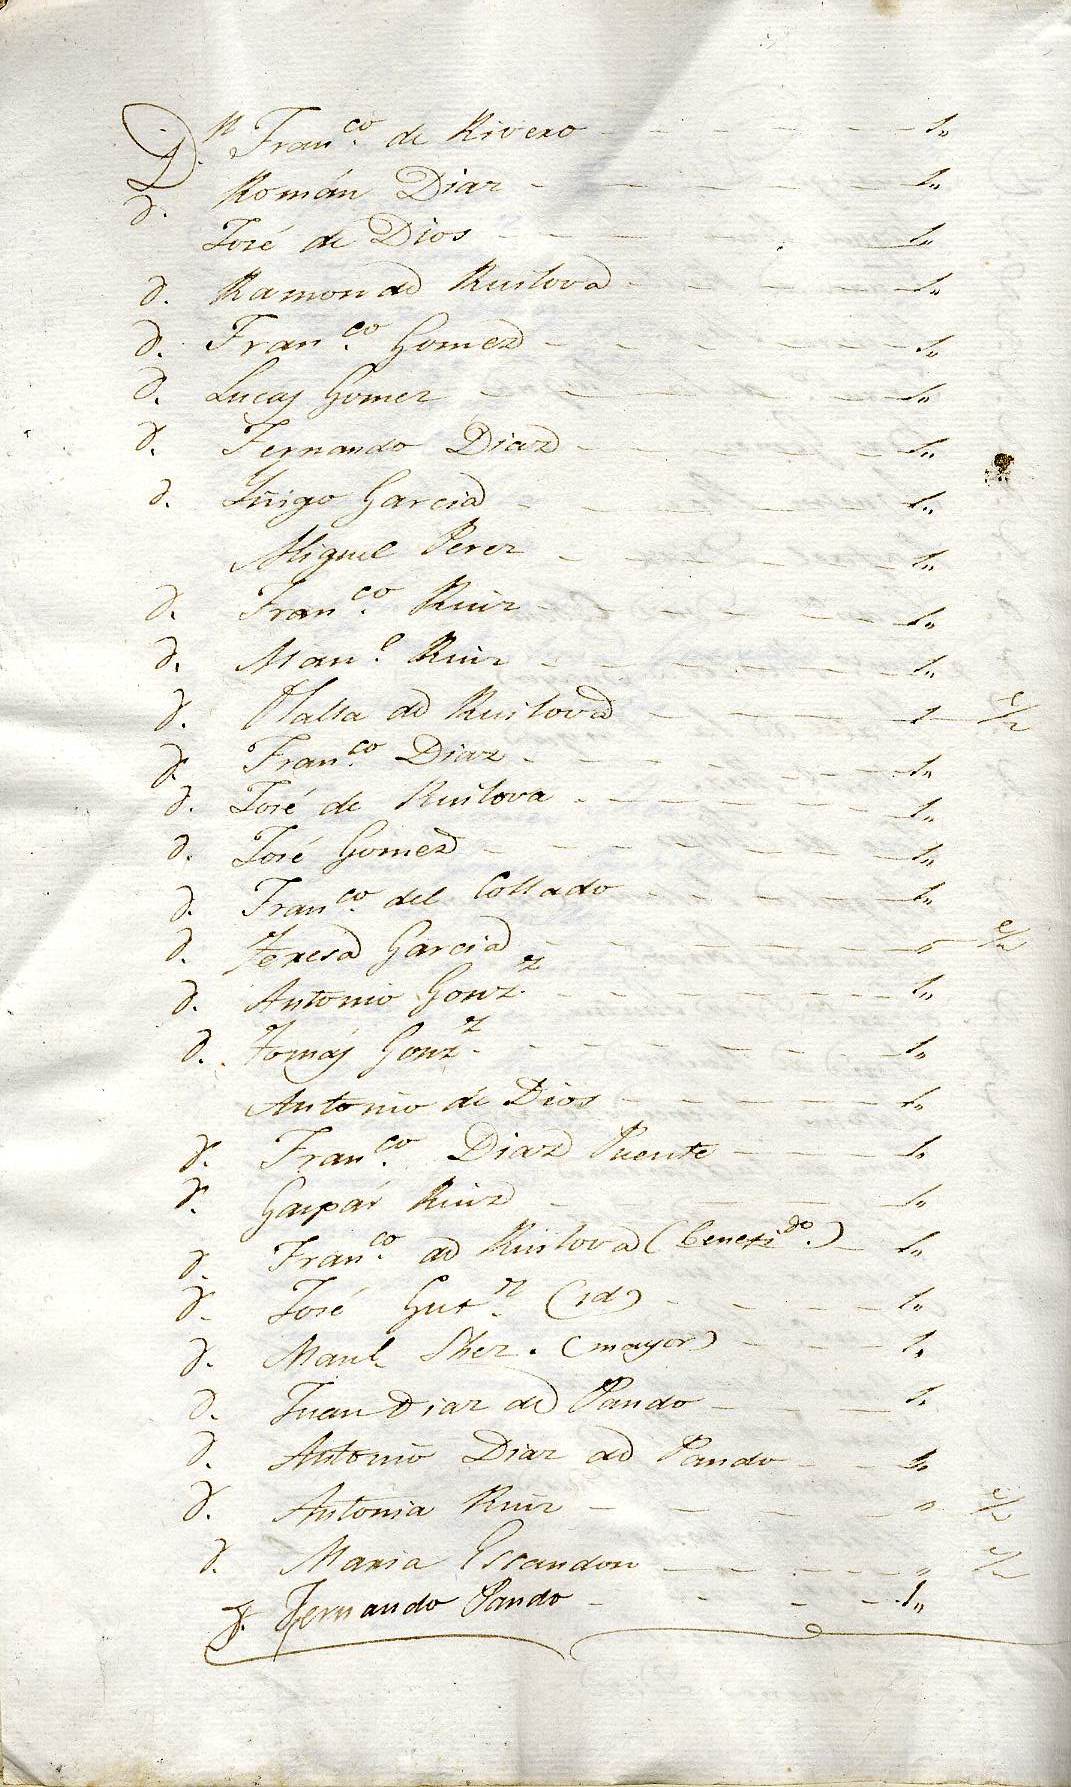 D.n Fran.co de Rivero 1,,
d. Román Diaz 1,,
José de Dios 1,,
d. Ramon de Ruilova 1,,
d. Fran.co Gomez 1,,
d. Lucas Gomez 1,,
d. Fernando Diaz 1,,
d. Iñigo Garcia 1,,
Miguel Perez 1,,
d. Fran.co Ruiz 1,,
d. Man.l Ruiz 1,,
d. de Ruilova 1/2
d. Fran.co Diaz 1,,
d. José de Ruilova 1,,
d. José Gomez 1,,
d. Fran.co del Collado 1,,
d. Teresa Garcia 1/2
d. Antonio Gonz.z 1,,
d. Tomás Gonz.z 1,,
Antonio de Dios 1,,
d. Fran.co Diaz Puente 1,,
d. Gaspár Ruiz 1,,
d. Fran.co de Ruilova (benefi.do) 1,,
d. José Gut.z (id) 1,,
d. Manl. Shez. (mayor) 1,,
d. Juan Diaz de Pando 1,,
d. Antonio Diaz de Pando 1,,
d. Antonia Ruiz ,, 1/2
d. Maria Escandon ,, 1/2
d. Fernando Pando 1,,